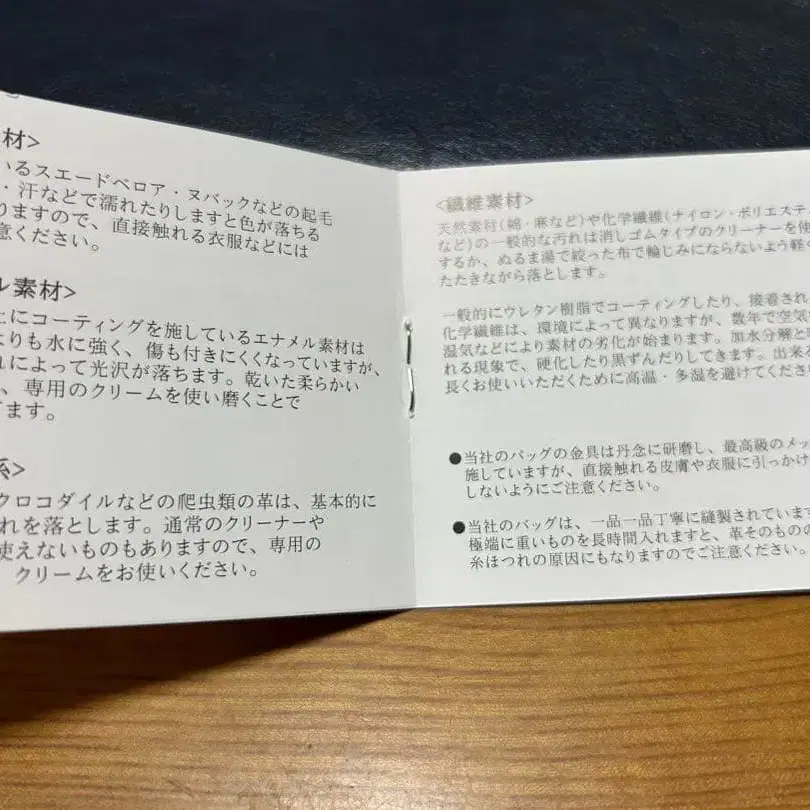 材>
いるスエードベロア・ヌバックなどの起毛
・汗などで濡れたりしますと色が落ちる
りますので、直接触れる衣服などには
意ください。
ル素材>
上にコーティングを施しているエナメル素材は
よりも水に強く、傷も付きにくくなっていますが、
れによって光沢が落ちます。乾いた柔らかい
、専用のクリームを使い磨くことで
ます。
系>
クロコダイルなどの爬虫類の革は、基本的に
れを落とします。通常のクリーナーや
使えないものもありますので、専用の
クリームをお使いください。
<繊維素材>
天然素材(綿・麻など)や化学繊維(ナイロン・ポリエステ
など)の一般的な汚れは消しゴムタイプのクリーナーを使
するか、ぬるま湯で絞った布で輪じみにならないよう軽く
たたきながら落とします。
一般的にウレタン樹脂でコーティングしたり、接着され
化学繊維は、環境によって異なりますが、数年で空気
湿気などにより素材の劣化が始まります。加水分解と
れる現象で、硬化したり黒ずんだりしてきます。出来る
長くお使いいただくために高温・多湿を避けてくださ
●当社のバッグの金具は丹念に研磨し、最高級のメッ
施していますが、直接触れる皮膚や衣服に引っかけ
しないようにご注意ください。
●当社のバッグは、一品一品丁寧に縫製されています
極端に重いものを長時間入れますと、革そのものの
糸ほつれの原因にもなりますのでご注意ください。